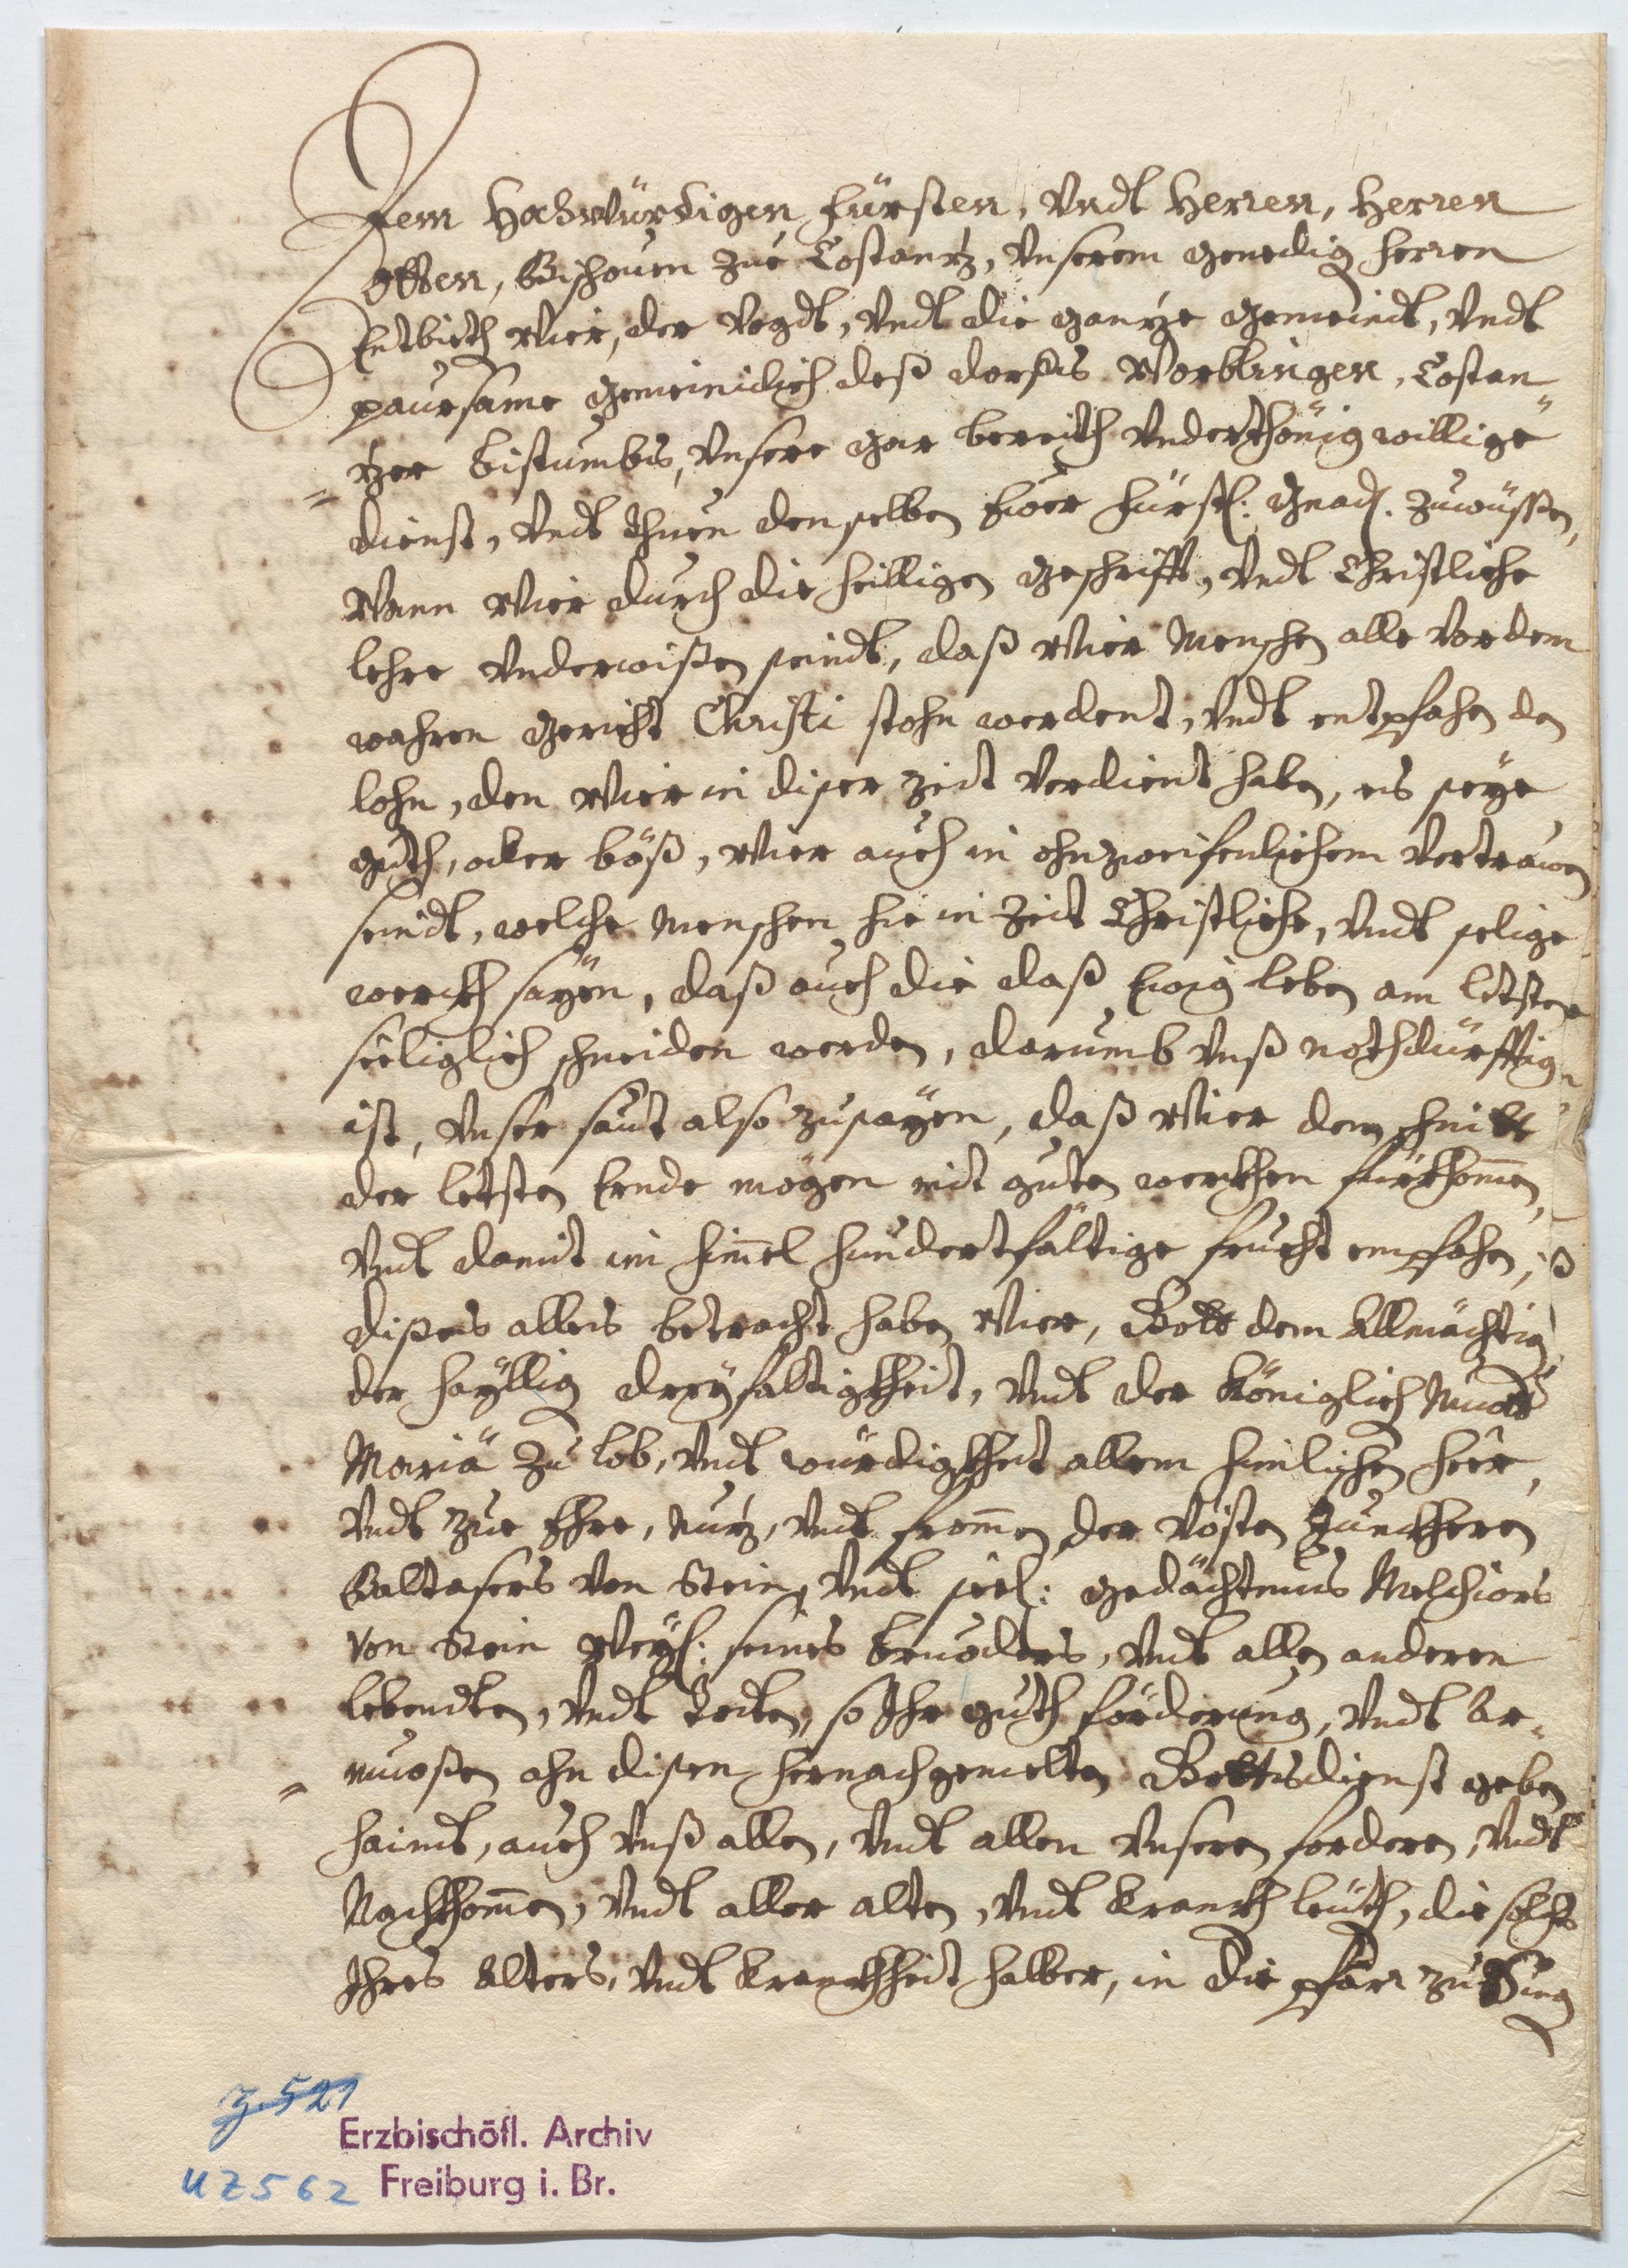 Dem Hochwürdigen Fürsten, Vndt Herren, Herren
Otten, Bischouen zue Costantz, Vnserem genedig herren
Entbieth Wier, der Vogdt, Vndt die gantze gemeindt, Vndt
paursame gemeinlich deß dorfs Worblingen, Costan
tzer Bistumbs, Vnsere gar bereith Vnderthönig willige
dienst, Vndt thuen denselben Ewer Fürstl: Gnad. zuwüssen,
Wann Wier durch die heilligen geschrifft, Vndt Christliche
lehre Vnderwißen seindt, daß Wier Menschen alle Vor dem
wahren gericht Christi stohn werdent, Vndt entpfahen den
lohn, den Wier in diser Zeit Verdient haben, es seye
guth, oder böß, Wier auch in ohnzweifenlichem Vertrawen
seindt, welche Menschen hie in Zeit Christliche, Vndt selige
werckh säyen, daß auch die daß Ewig leben am letsten
seeliglich schneiden werden, darumb Vnß nothdürfftig
ist, Vnser saut also zusayen, daß Wier dem schnitt
der letsten Ernde mögen mit guten werkhen fürkhomen,
Vndt damit im himel hundertfältige frucht empfahen,
dißes alles betracht haben Wier, Gott dem Allmächtig
der hayllig dreyfaltigkheit, Vndt der Königlich Muott
Mariä zu lob, Vndt würdigkheit allem himlischen heer,
Vndt zue Ehre, nutz, Vndt fromen der Vösten Junckheren
Baltasers Von Stein, Vndt seel: gedächtnus Melchiors
Von Stein Weyl: seines bruoders, Vndt allen anderen
lebendten, Vndt Todten, so Ihr guth förderung, Vndt Ar-
muoßen ahn disen hernachgemelten Gottsdienst geben
haindt, auch Vnß allen, Vndt allen Vnseren forderen, Vndt
Nachkhomen, Vndt aller alten, Vndt kranckh leuth, die solchs
Ihres Alters, Vndt kranckheit halber, in die pfarr zu Sing
Z 521
Erzbischöfl. Archiv
UZ562 Freiburg i. Br.